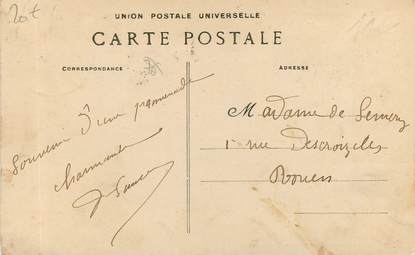 20t
UNION POSTALE UNIVERSELLE
CARTE POSTALE
CORRESPONDANCE
ADRESSE
Souvenir d'une promenade
charmante
Madame de
1 rue Descroizilles
Rouen